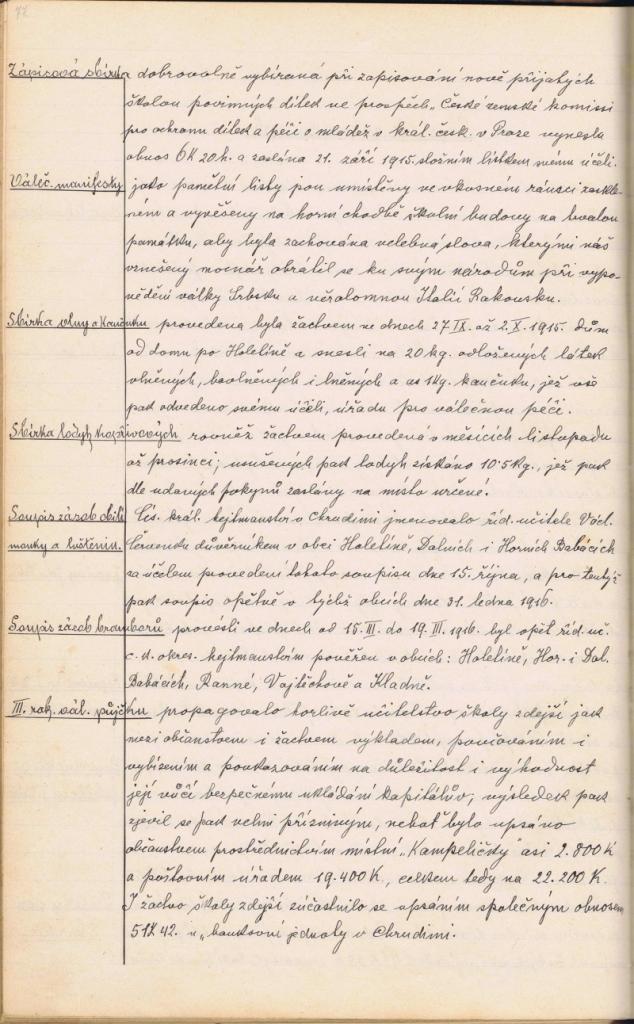 77
Zápisová sbírka dobrovolně vybíraná při zapisování nově přijatých
školou povinných dítek ve prospěch „České zemské komissi
pro ochranu dítek a péči o mládež v král. česk. v Praze vynesla
obnos 6K 20h. a zaslána 21. září 1915. složním lístkem svému účeli.
Váleč. manifesty jako pamětní listy jsou umístěny ve vkusném rámci zaskle-
ném a vyvěšeny na horní chodbě školní budovy na trvalou
památku, aby byla zachována velebná slova, kterými náš
vznešený mocnář obrátil se ku svým národům při vypo-
vědění války Srbsku a věrolomnou Italií Rakousku.
Sbírka vlny a Kaučuku provedena byla žactvem ve dnech 27.IX. až 2.X. 1915. dům
od domu po Holetíně a snesli na 20 kg. odložených látek
vlněných, bavlněných i lněných a as 1 kg. kaučuku, jež vše
pak odvedeno svému účeli, úřadu pro válečnou péči.
Sbírka lodyh kopřivových rovněž žactvem provedena v měsících listopadu
až prosinci; usušených pak lodyh získáno 10·5 kg., jež pak
dle udaných pokynů zaslány na místo určené.
Soupis zásob obilí Cís. král. hejtmanství v Chrudimi jmenovalo říd. učitele Václ.
mouky a luštěnin. Červenku důvěrníkem v obci Holetíně, Dolních i Horních Babácích
za účelem provedení tohoto soupisu dne 15. října, a pro tentýž
pak soupis opětně v týchž obcích dne 31. ledna 1916.
Soupis zásob bramborů provésti ve dnech od 15.III. do 19.III. 1916. byl opět říd. uč.
c. k. okres. hejtmanstvím pověřen v obcích: Holetíně, Hor. i Dol.
Babácích, Ranné, Vojtěchově a Kladně.
III. rak. vál. půjčku propagovalo horlivě učitelstvo školy zdejší jak
mezi občanstvem i žactvem výkladem, poučováním i
vybízením a poukazováním na důležitost i výhodnost
její vůči bezpečnému ukládání kapitálův; výsledek pak
zjevil se pak velmi příznivým, neboť bylo upsáno
občanstvem prostřednictvím místní „Kampeličky" asi 2.800 K
a poštovním úřadem 19.400 K, celkem tedy na 22.200 K.
I žactvo školy zdejší zúčastnilo se upsáním společným obnosem
51K 42. u „bankovní jednoty v Chrudimi.